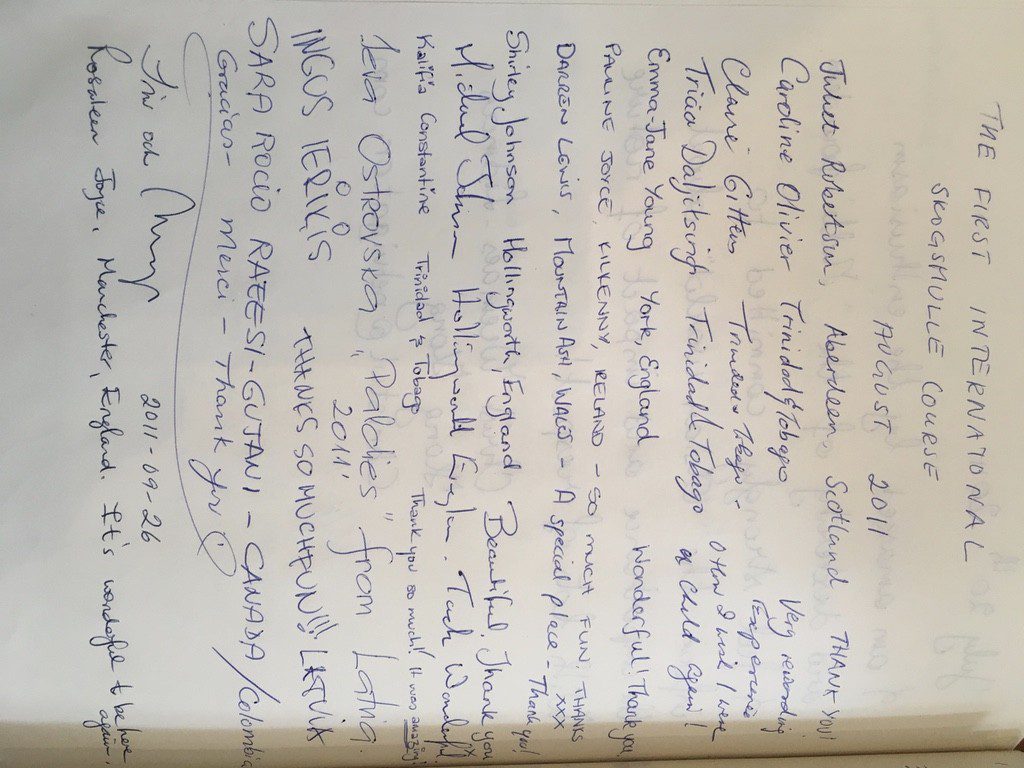 THE FIRST INTERNATIONAL
SKOGSMULLE COURSE
AUGUST 2011
Juliet Robertson, Aberdeen, Scotland THANK YOU!
Caroline Olivier Trinidad & Tobago Very rewarding Experience
Claire Gittens Trinidad & Tobago O how I wish I were
Tricia Daljitsingh Trinidad & Tobago a child again!
Emma-Jane Young York, England Wonderful! Thank you
PAULINE JOYCE, KILKENNY, IRELAND - SO MUCH FUN! THANKS XXX
DARREN LEWIS, MOUNTAIN ASH, WALES - A special place - Thank you!
Shirley Johnson Hollingworth, England Beautiful. Thank you x
Michael Johnson Hollingworth England. Tack Wonderful
Kalifa Constantine Trinidad & Tobago Thank you so much! It was amazing!
Ieva Ostrovska "Paldies" from Latvia.
2011.
INGUS IERKIS THNKS SO MUCH FUN!!! LATVIA
SARA ROCIO RAEESI-GUJANI - CANADA / Colombia
Gracias - Merci - Thank you
Siw och 2011-09-26
Rosaleen Joyce, Manchester, England. It's wonderful to be here again.